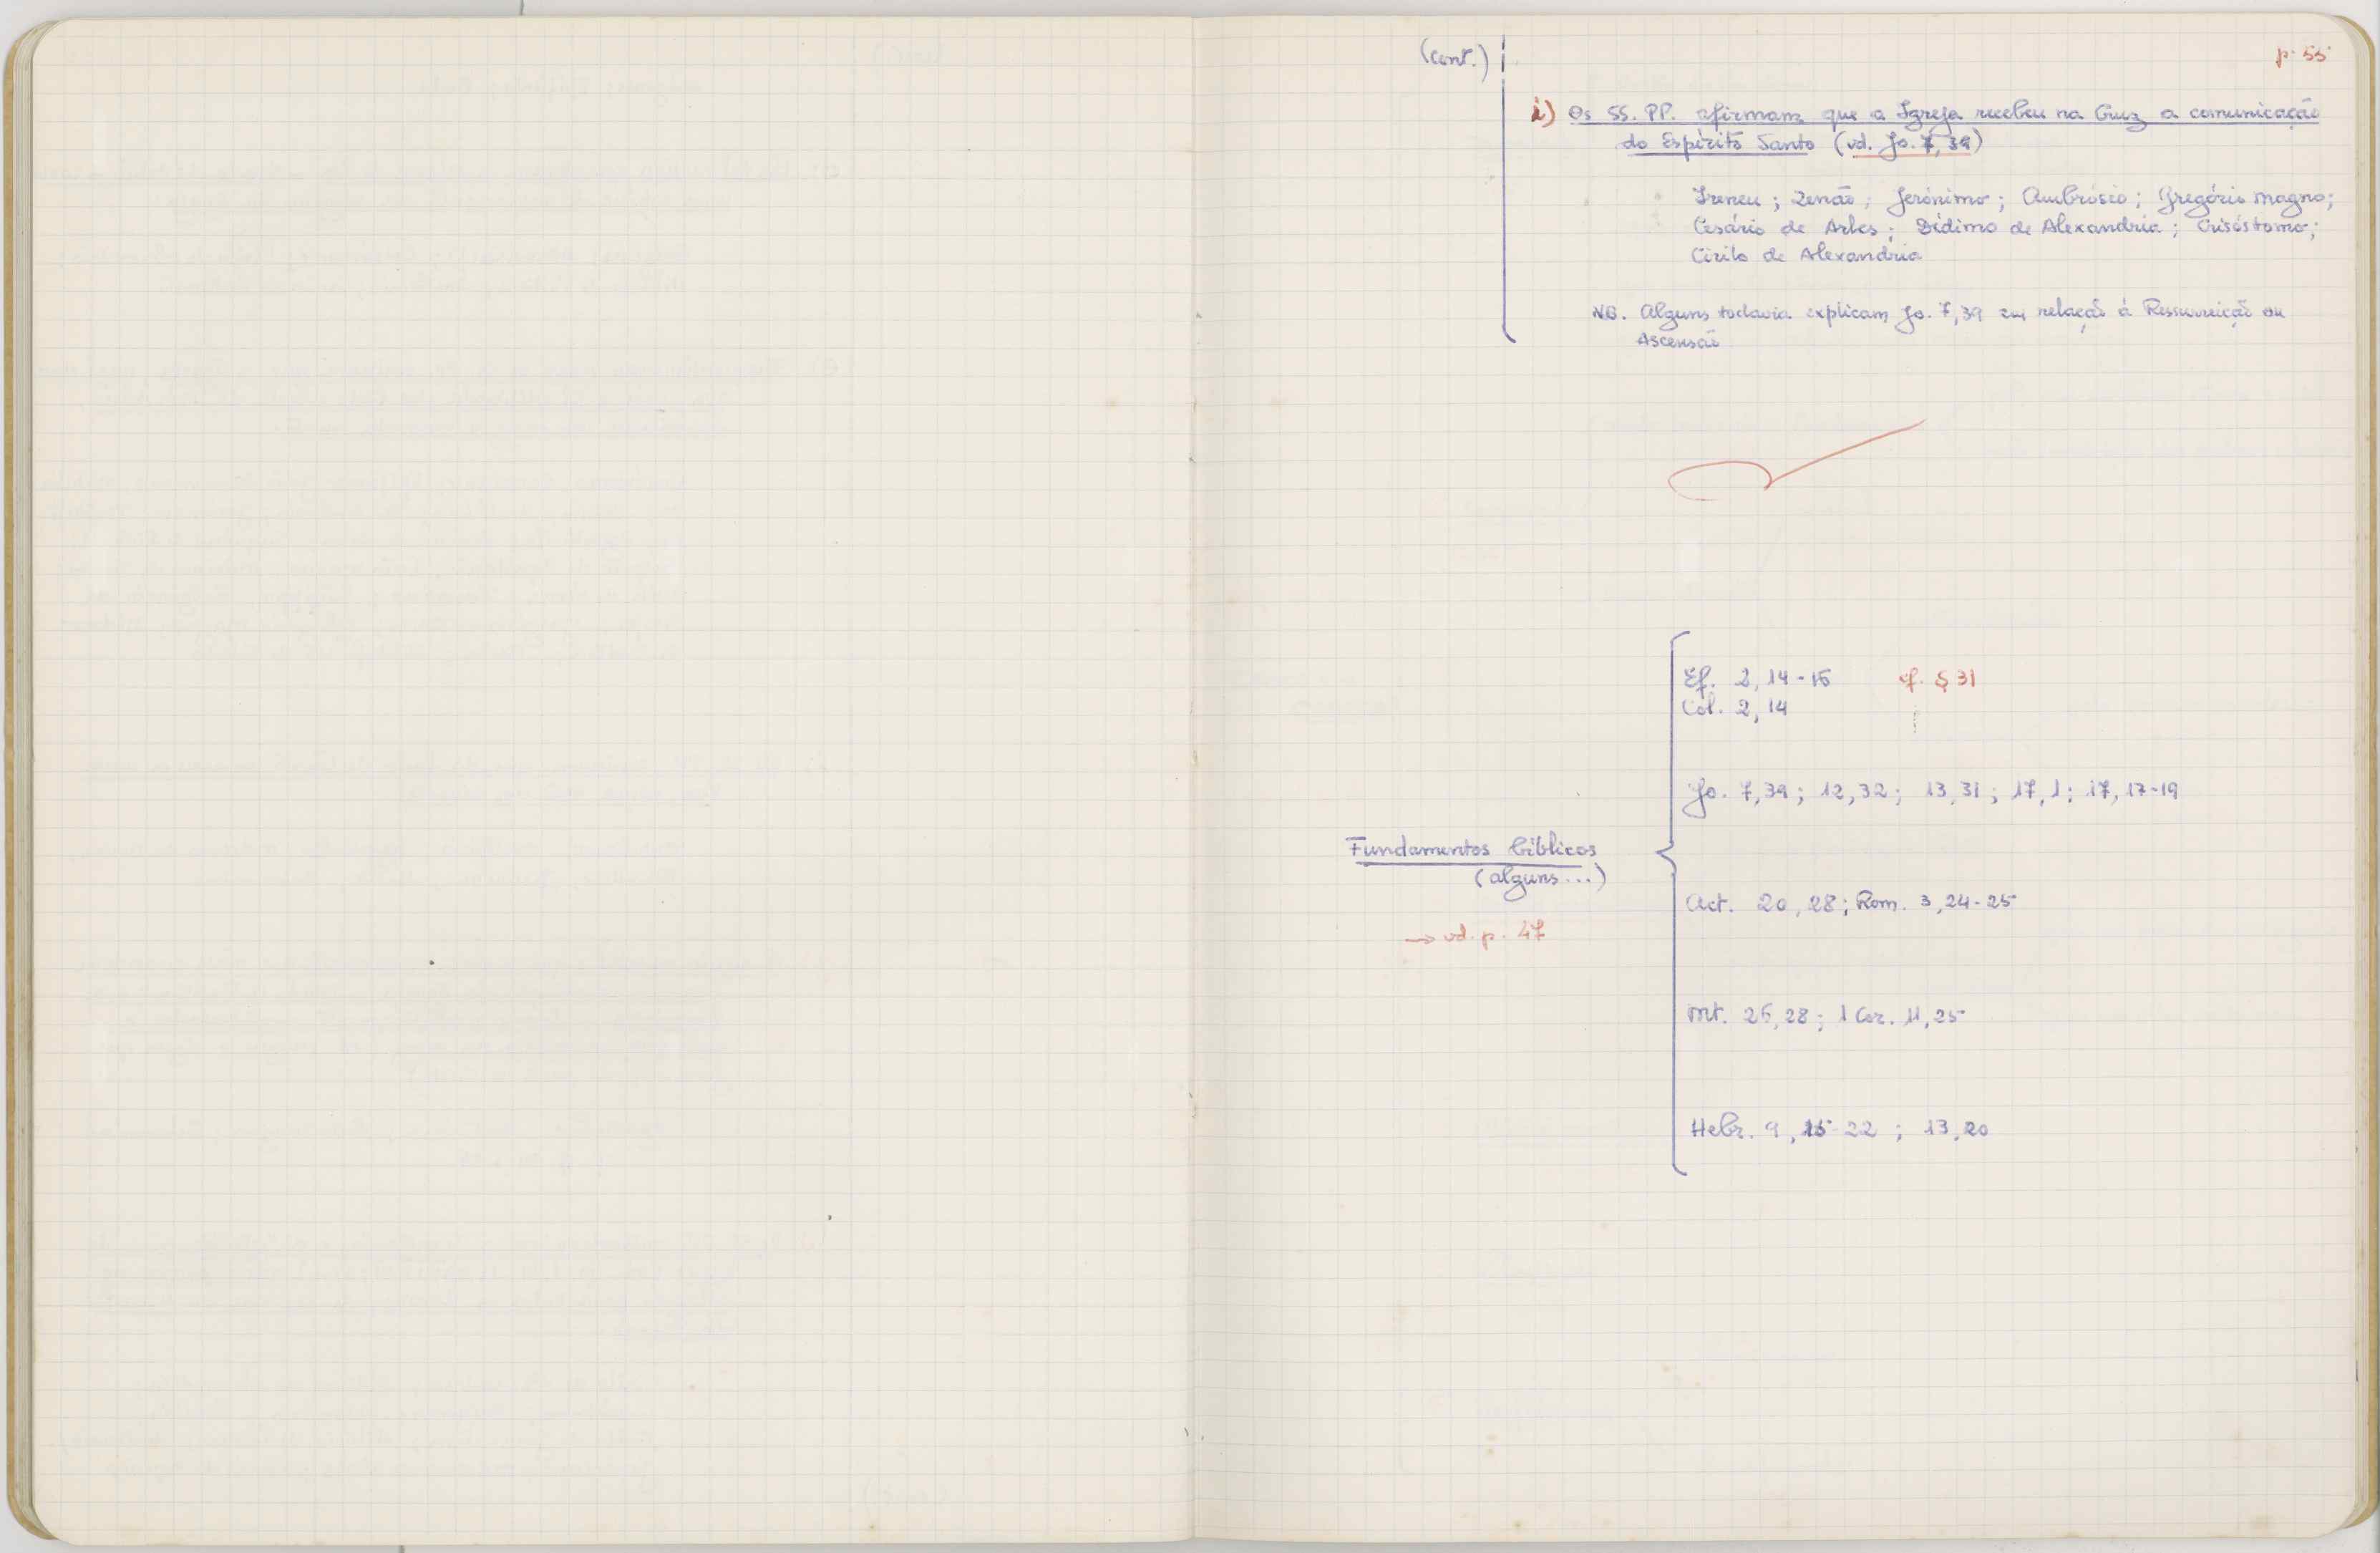 (cont.)
p. 55
i) Os SS. PP. afirmam que a Igreja recebeu na Cruz a comunicação
do Espírito Santo (vd. Jo. 7, 39)
Ireneu ; Zenão ; Jerónimo ; Ambrósio ; Gregório Magno ;
Cesário de Arles ; Dídimo de Alexandria ; Crisóstomo ;
Cirilo de Alexandria
NB. Alguns todavia explicam Jo. 7, 39 em relação à Ressurreição ou
Ascensão
Ef. 2, 14-15 cf. § 31
Col. 2, 14
Jo. 7, 39 ; 12, 32 ; 13, 31 ; 17, 1 ; 17, 17-19
Fundamentos bíblicos
(alguns...)
Act. 20, 28 ; Rom. 3, 24-25
→ vd. p. 47
Mt. 26, 28 ; 1 Cor. 11, 25
Hebr. 9, 15-22 ; 13, 20